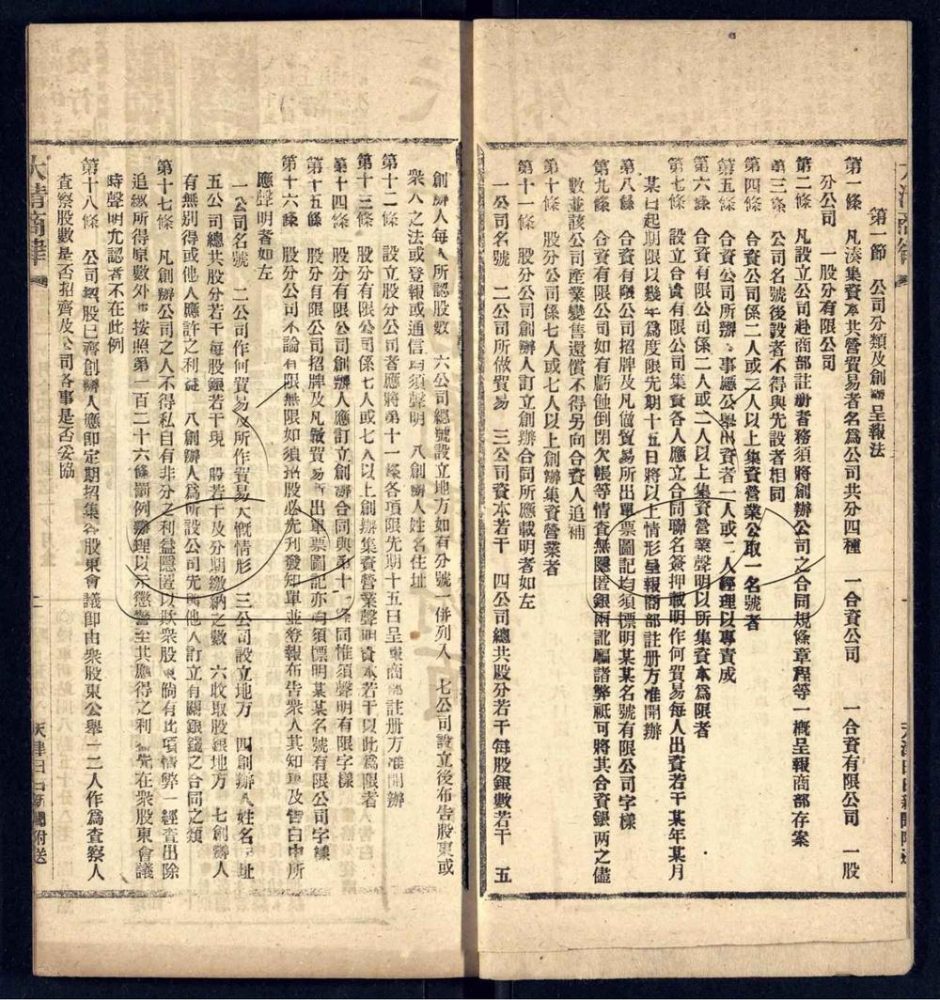 大清商律
第一節　公司分類及創辦呈報法
第一條　凡湊集資本共營貿易者名爲公司共分四種　一合資公司　一合資有限公司　一股
分公司　一股分有限公司
第二條　凡設立公司赴商部註册者務須將創辦公司之合同規條章程等一槪呈報商部存案
第三條　公司名號後設者不得與先設者相同
第四條　合資公司係二人或二人以上集資營業公取一名號者
第五條　合資公司所辦之事應公舉出資者一人或二人經理以專責成
第六條　合資有限公司係二人或二人以上集資營業聲明以所集資本爲限者
第七條　設立合資有限公司集資各人應立合同聯名簽押載明作何貿易每人出資若干某年某月
某日起期限以幾年爲度限先期十五日將以上情形呈報商部註册方准開辦
第八條　合資有限公司招牌及凡做貿易所出單票圖記均須標明某某名號有限公司字樣
第九條　合資有限公司如有虧蝕倒閉欠帳等情查無隱匿銀兩訛騙諸弊祇可將其合資銀兩之儘
數並該公司產業變售還償不得另向合資人追補
第十條　股分公司係七人或七人以上創辦集資營業者
第十一條　股分公司創辦人訂立創辦合同所應載明者如左
一公司名號　二公司所做貿易　三公司資本若干　四公司總共股分若干每股銀數若干　五
創辦人每人所認股數　六公司總號設立地方如有分號一併列入　七公司設立後布告股東或
衆人之法或登報或通信均須聲明　八創辦人姓名住址
第十二條　設立股分公司者應將第十一條各項限先期十五日呈報商部註册方准開辦
第十三條　股分有限公司係七人或七人以上創辦集資營業聲明資本若干以此爲限者
第十四條　股分有限公司創辦人應訂立創辦合同與第十一條同惟須聲明有限字樣
第十五條　股分有限公司招牌及凡做貿易所出單票圖記亦均須標明某某名號有限公司字樣
第十六條　股分公司不論有限無限如須招股必先刋發知單並登報布告衆人其知單及告白中所
應聲明者如左
一公司名號　二公司作何貿易及所作貿易大槪情形　三公司設立地方　四創辦人姓名住址
五公司總共股分若干每股銀若干現　股若干及分期繳納之數　六收取股銀地方　七創辦人
有無別得或他人應許之利益　八創辦人爲所設公司先與他人訂立有關銀錢之合同之類
第十七條　凡創辦公司之人不得私自有非分之利益隱匿以欺衆股東倘有此項情弊一經査出除
追繳所得原數外　按照第一百二十六條罰例辦理以示懲警至其應得之利　先在衆股東會議
時聲明允認者不在此例
第十八條　公司招股已齊創辦人應即定期招集各股東會議即由衆股東公舉一二人作爲査察人
査察股數是否招齊及公司各事是否妥協
大清商律
天津日日新聞附送
天津日日新聞附送